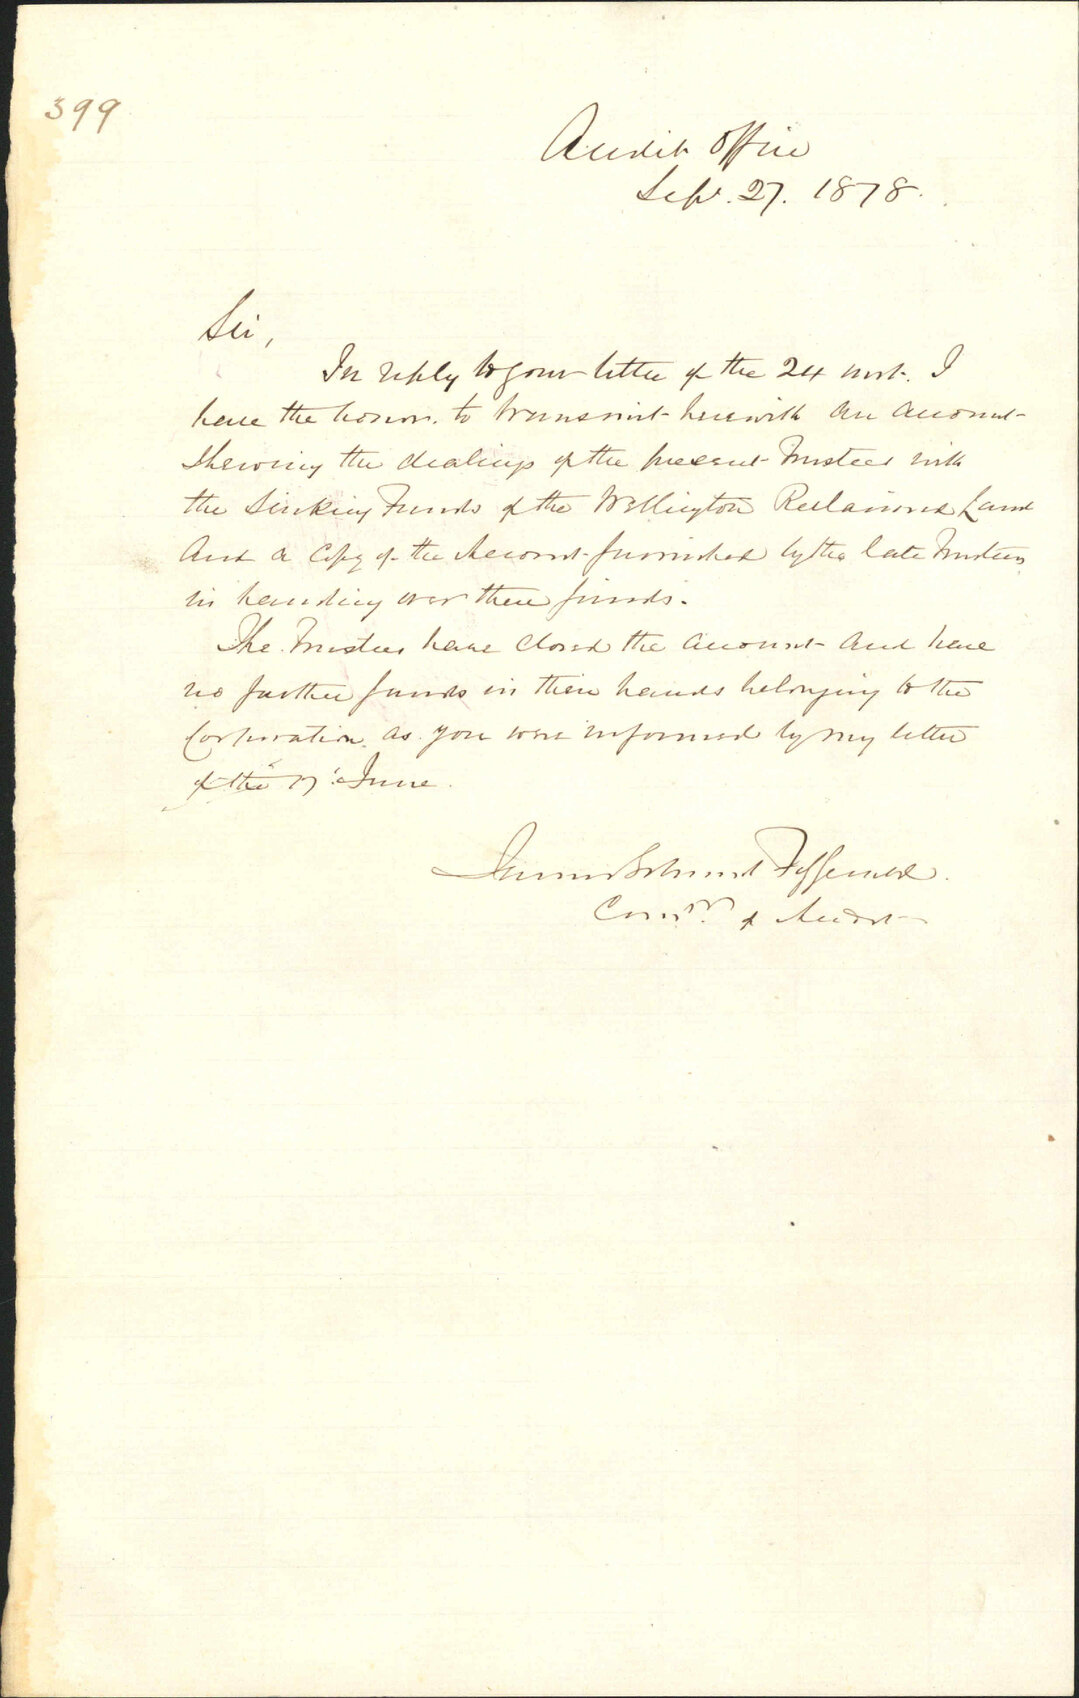 399
Audit Office
Sept. 27. 1878.
Sir,
In reply to your letter of the 24 inst. I
have the honor. to transmit herewith an account
shewing the dealings of the present Trustees with
the Sinking Funds of the Wellington Reclaimed Land
and a copy of the Account furnished by the late Trustees
in handing over these funds.
The Trustees have closed the account and have
no further funds in their hands belonging to the
Corporation. as you were informed by my letter
of the 17th June.
James Edward FitzGerald.
Comr. of Audit